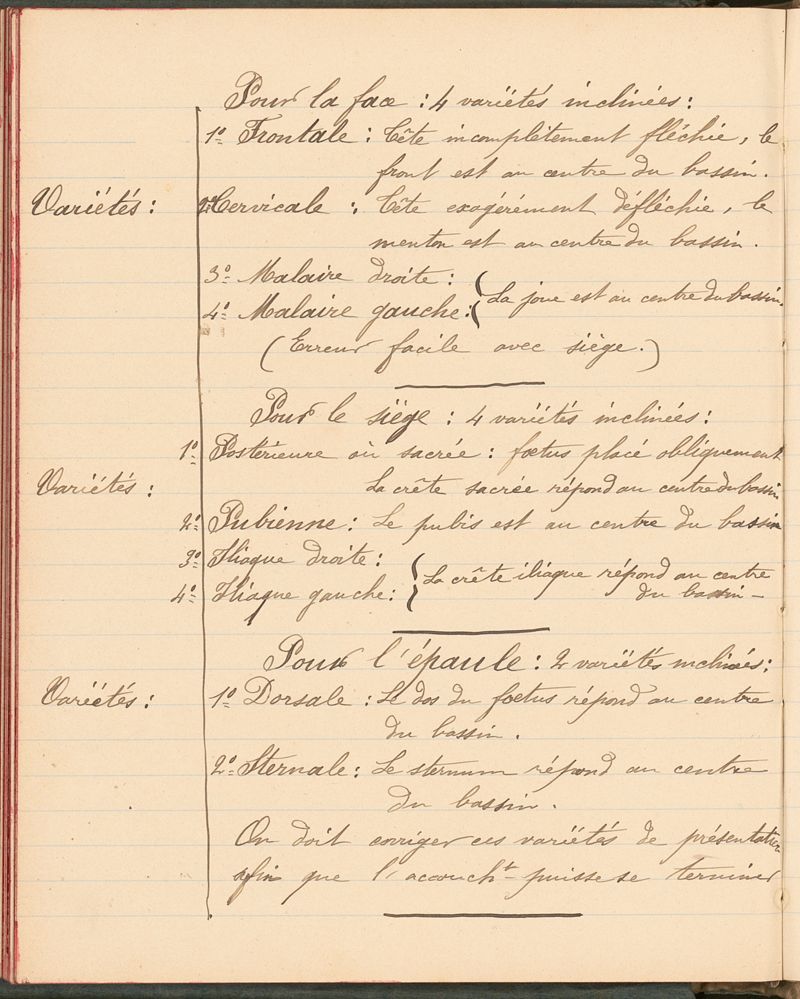 Pour la face : 4 variétés inclinées :
1º Frontale : Tête incomplètement fléchie, le
front est au centre du bassin.
Variétés : 2º Cervicale : Tête exagérément défléchie, le
menton est au centre du bassin.
3º Malaire droite :
4º Malaire gauche : { La joue est au centre du bassin.
(Erreur facile avec siège.)
Pour le siège : 4 variétés inclinées :
1º Postérieure où sacrée : fœtus placé obliquement
Variétés : La crête sacrée répond au centre du bassin
2º Pubienne : Le pubis est au centre du bassin
3º Iliaque droite :
4º Iliaque gauche : { La crête iliaque répond au centre
du bassin -
Pour l'épaule : 2 variétés inclinées :
Variétés : 1º Dorsale : Le dos du fœtus répond au centre
du bassin.
2º Sternale : Le sternum répond au centre
du bassin.
On doit corriger ces variétés de présentation
afin que l'accouch^t puisse se terminer